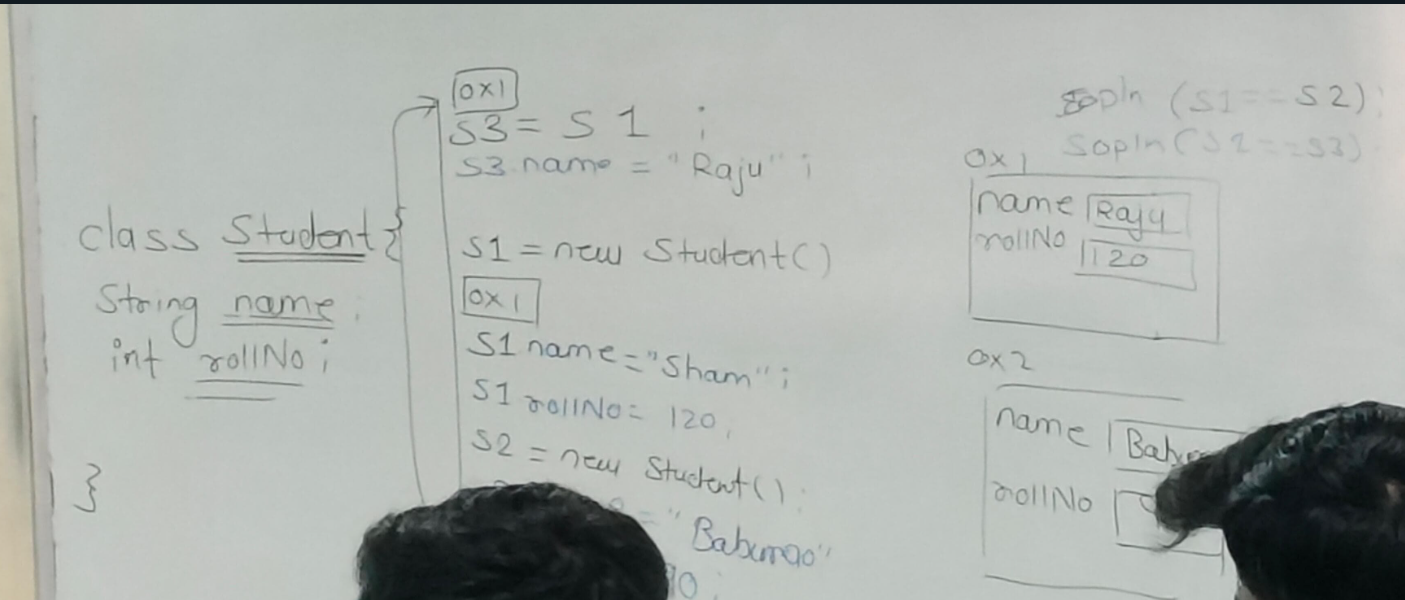 class Student {
String name;
int rollNo;
}
0x1
S3 = S1;
S3.name = "Raju";
S1 = new Student()
0x1
S1 name="Sham";
S1 rollNo= 120,
S2 = new Student();
= "Baburao"
0;
sopln (S1==S2);
sopln(S1==S3)
0x1
name Raju
rollNo 120
0x2
name
rollNo